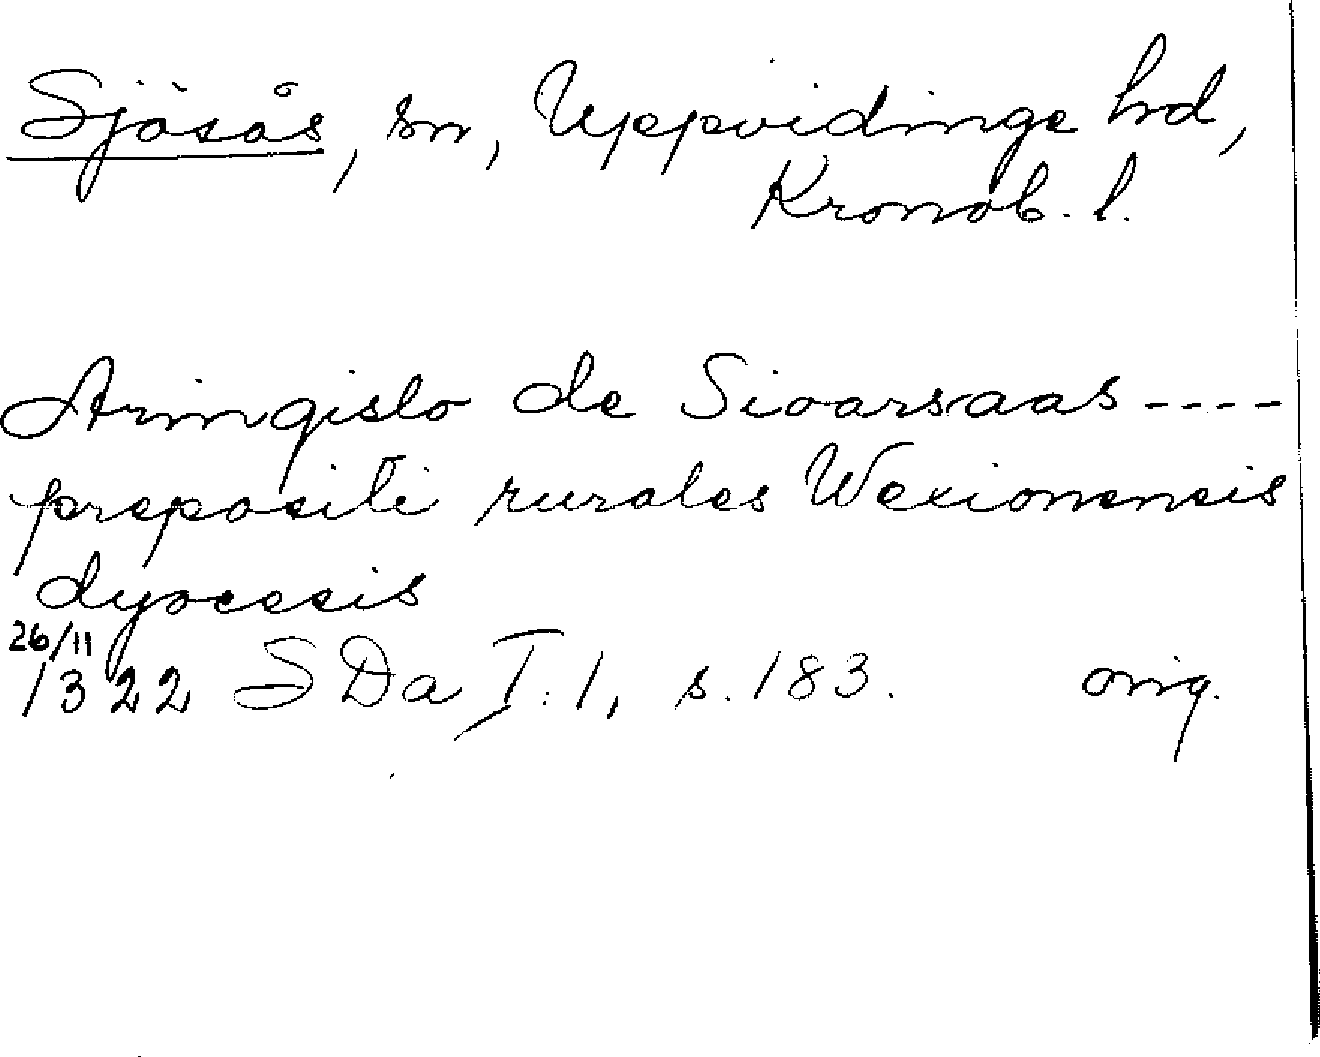 Sjösås, sn, Uppvidinge hd,
Kronob. l.
Armgislo de Sioarsaas ----
prepositi rurales Wexionensis
dyocesis
26/11
1322 SDa I:1, s. 183. orig.